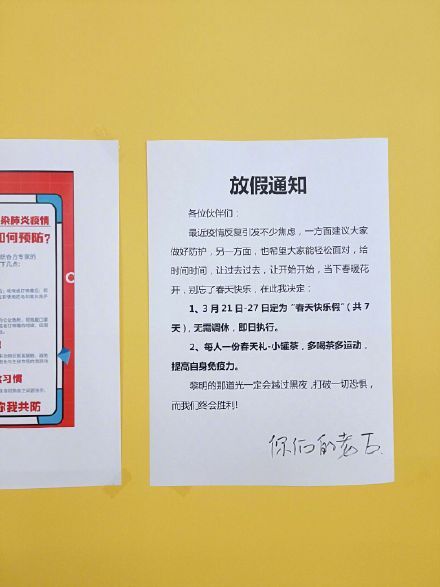 染肺炎疫情
如何预防?
下几点:
习惯
你我共防
放假通知
各位伙伴们:
最近疫情反复引发不少焦虑,一方面建议大家
做好防护,另一方面,也希望大家能轻松面对,给
时间时间,让过去过去,让开始开始,当下春暖花
开,别忘了春天快乐,在此我决定:
1、3月21日-27日定为“春天快乐假”(共7
天),无需调休,即日执行。
2、每人一份春天礼-小罐茶,多喝茶多运动,
提高自身免疫力。
黎明的那道光一定会越过黑夜,打破一切恐惧,
而我们终会胜利!
你们的老百